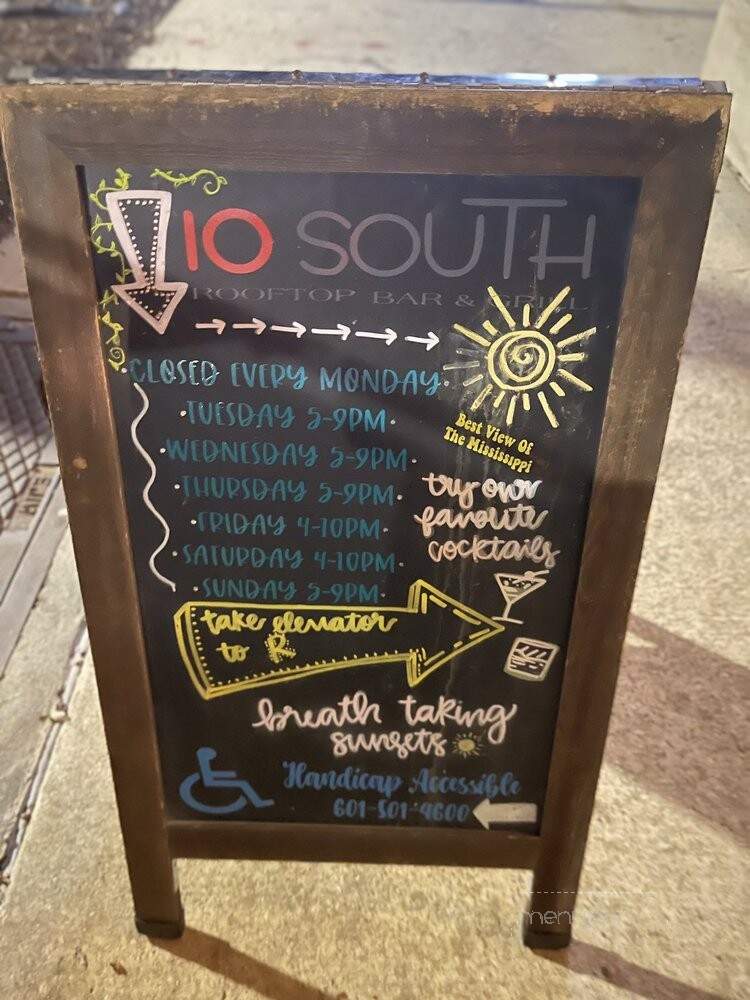 10 SOUTH
ROOFTOP BAR & GRILL
CLOSED EVERY MONDAY
TUESDAY 5-9PM
WEDNESDAY 5-9PM
THURSDAY 5-9PM
FRIDAY 4-10PM
SATURDAY 4-10PM
SUNDAY 5-9PM
Best View Of
The Mississippi
try our
favorite
cocktails
take elevator
to R
breath taking
sunsets
Handicap Accessible
601-501-4600